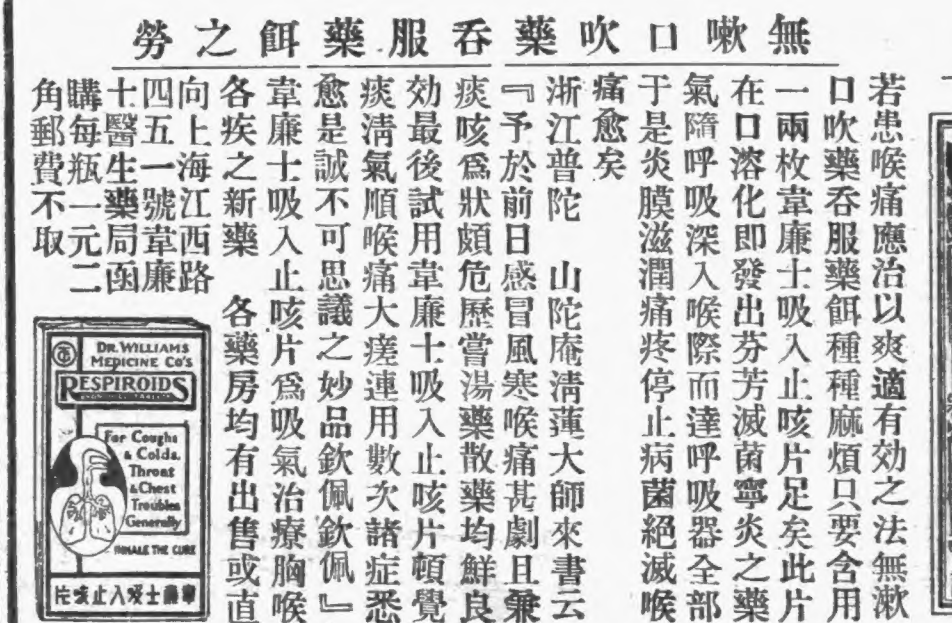 無嗽口吹藥吞服藥餌之勞
若患喉痛應治以爽適有効之法無漱
口吹藥吞服藥餌種種麻煩只要含用
一兩枚韋廉士吸入止咳片足矣此片
在口溶化即發出芬芳滅菌寧炎之藥
氣隨呼吸深入喉際而達呼吸器全部
于是炎膜滋潤痛疼停止病菌絕滅喉
痛愈矣
浙江普陀　山陀庵淸蓮大師來書云
『予於前日感冒風寒喉痛甚劇且兼
痰咳爲狀頗危歷嘗湯藥散藥均鮮良
効最後試用韋廉士吸入止咳片頓覺
痰淸氣順喉痛大瘥連用數次諸症悉
愈是誠不可思議之妙品欽佩欽佩』
韋廉士吸入止咳片爲吸氣治療胸喉
各疾之新藥　各藥房均有出售或直
向上海江西路
四五一號韋廉
士醫生藥局函
購每瓶一元二
角郵費不取
DR. WILLIAMS
MEDICINE CO'S
RESPIROIDS
For Coughs
& Colds.
Throat
& Chest
Troubles
Generally
INHALE THE CURE
韋廉士吸入止咳片